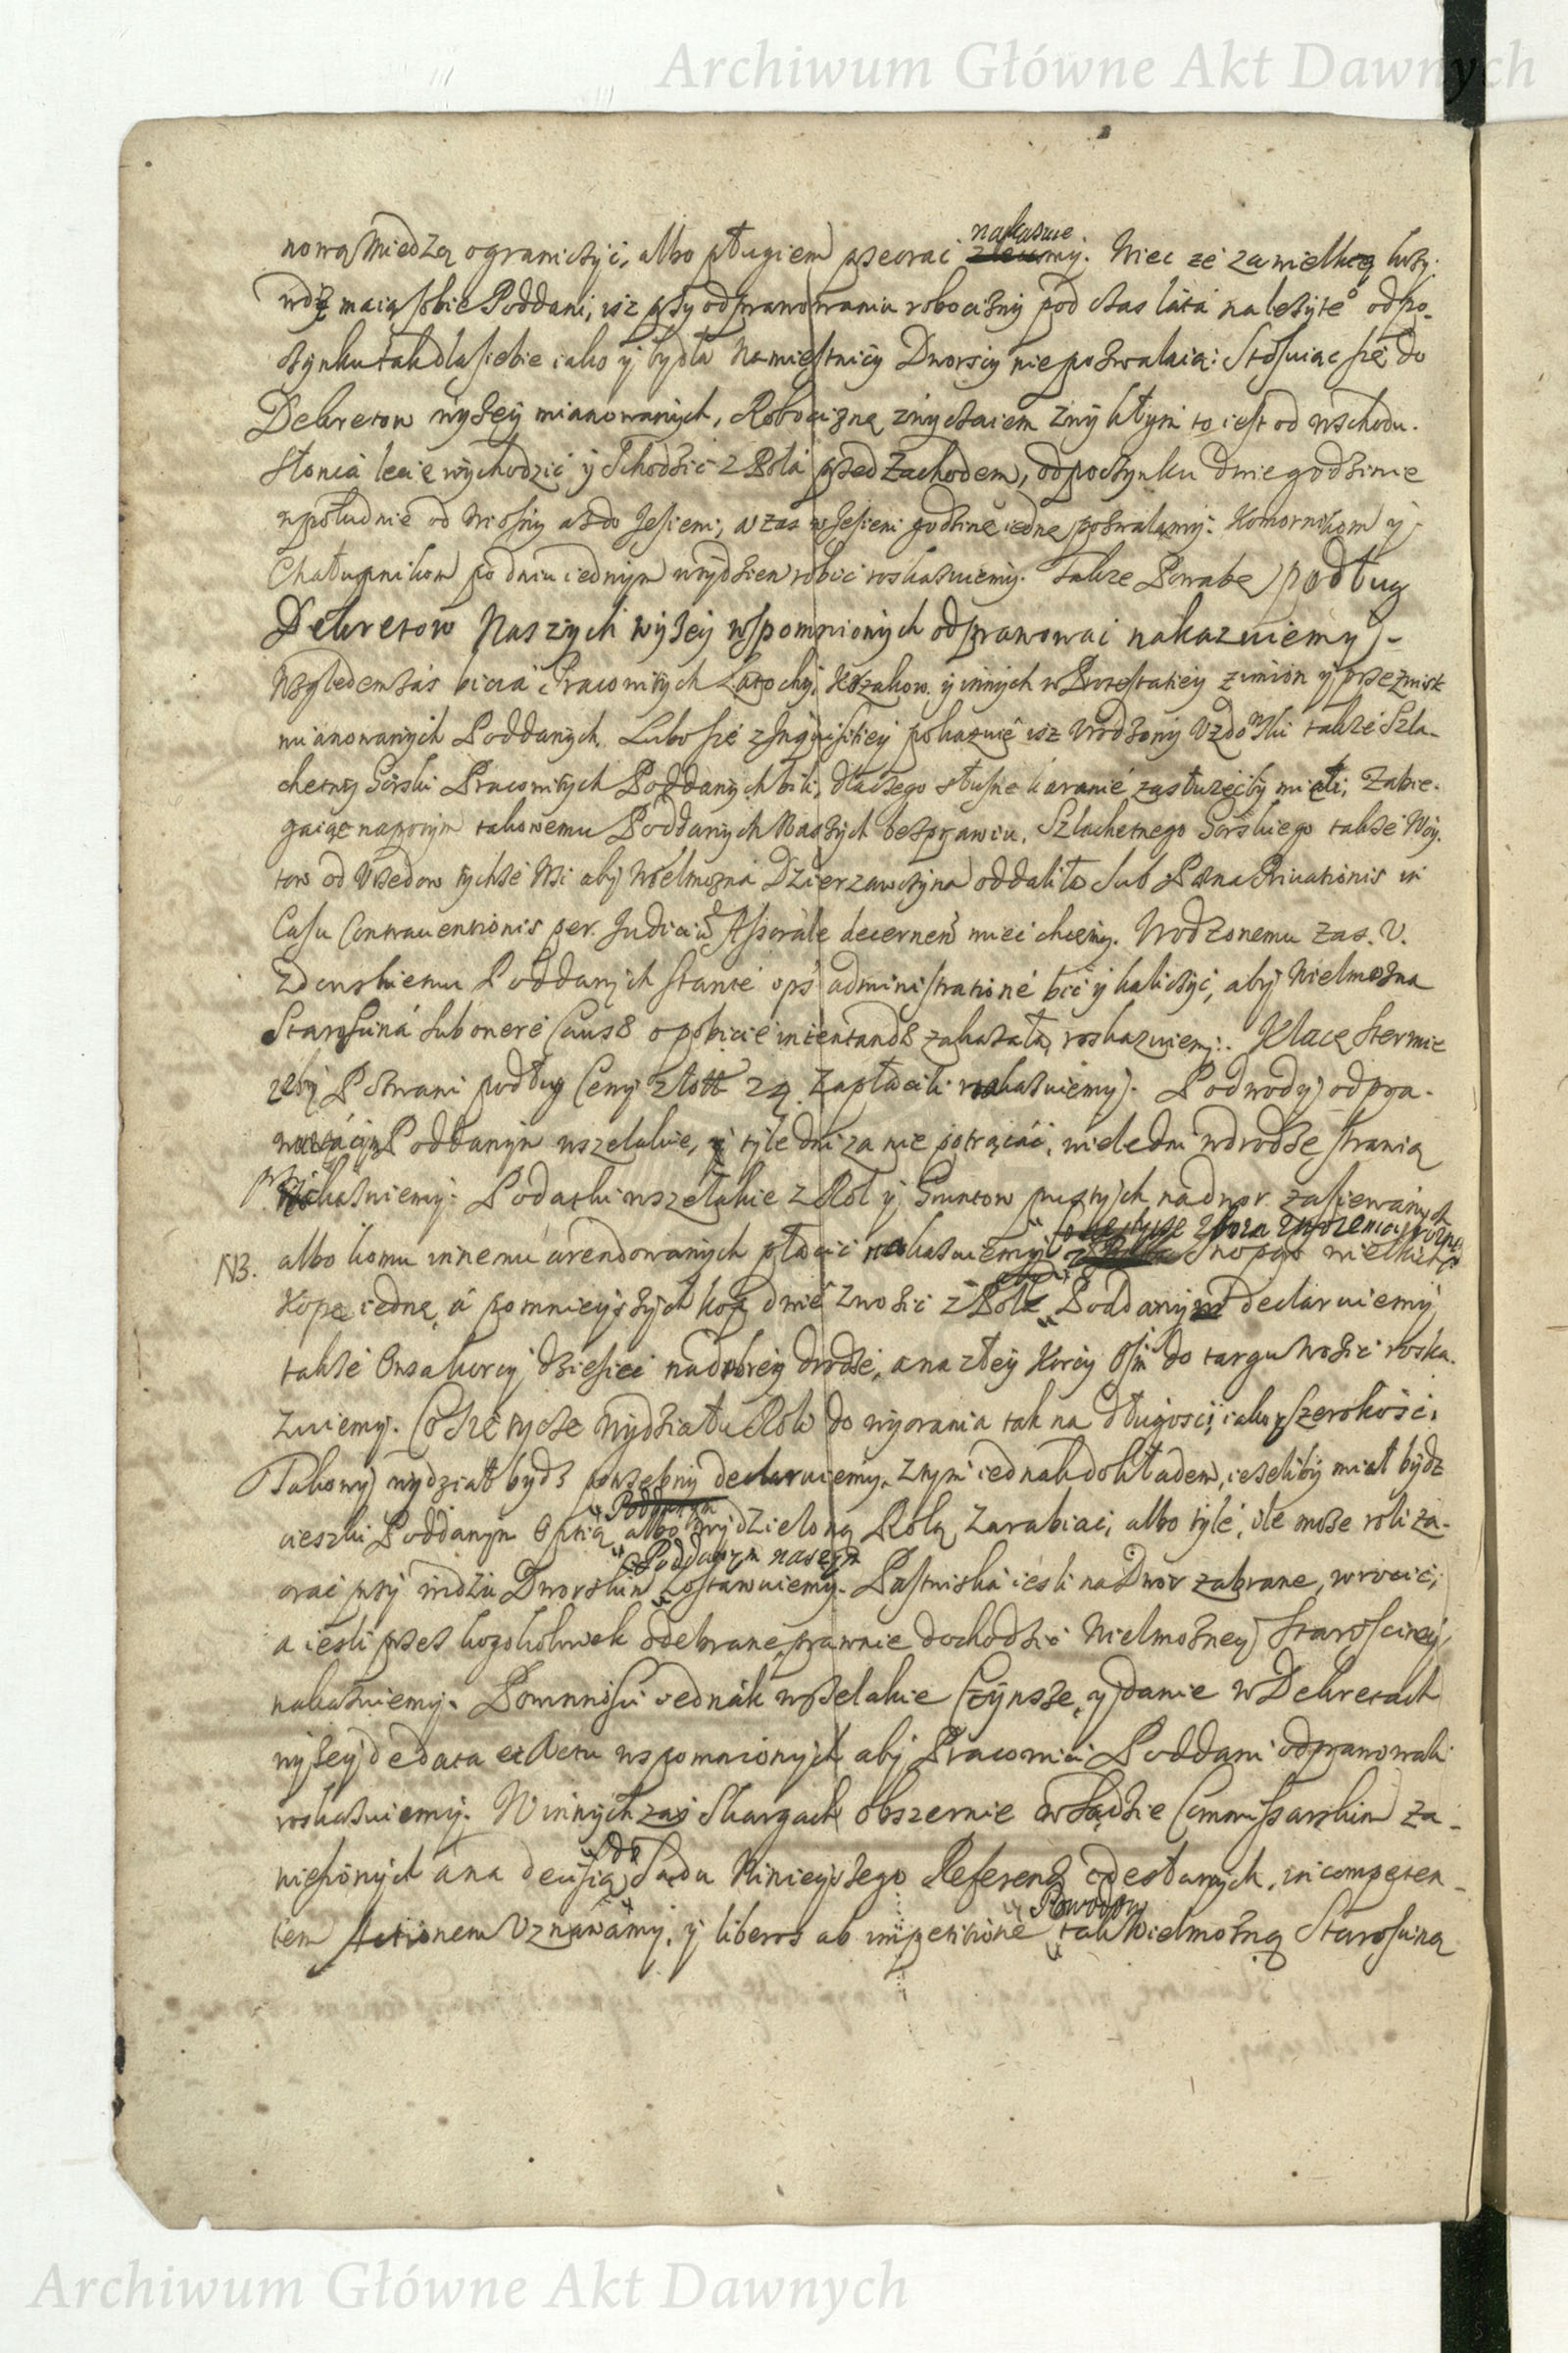 Archiwum Główne Akt Dawnych
nakazuie
nową Miedzą ograniczyć, albo pługiem przeorać my. Więc że za wielką krzy-
wdę maią sobie Poddani, isz przy odprawowaniu robocizny pod czas lata należyte odpo-
czynku tak dla siebie iako y bydła Namiestnicy Dworscy niepozwalaią: Stosuiąc się do
Dekretow wyżey mianowanych, Robociznę zwyczaiem zwykłym to iest od wschodu
Słońca lecie wychodzić y schodzić z Rolá przed Zachodem, odpoczynku dwie godzinie
w południe od wiosny aż do Jesieni, a zaś w Jesieni godzinę iednę pozwalamy. Komornikom y
Chałupnikom po dniu iednym w tydzień robić roskazuiemy. Także podług
Dekretow Naszych wyżey wspomnionych odprawować nakazuiemy.
Względem zaś bicia Pracowitych Kozakow y innych w Protestatiey z imion y przezwisk
mianowanych Poddanych. Lubo się z Inquisitiey pokazuie isz Urodzony także Szla-
chetny Gorski Pracowitych Poddanych bili, dla czego słuszne karanie zasłużeliby mieli; Zabie-
gaiąc takowemu Poddanych Naszych bezprawiu, Szlachetnego Gorskiego także Woy-
tow od Urzedow tychże Wsi aby Wielmożna Dzierzawczyna oddaliła sub Poena Privationis in
Casu Contraventionis per Judiciu Assorale decernen miec chcemy. Urodzonemu zaś U.
Poddanych Starostwa administratione bić y kaliczyć, aby Wielmożna
Starościná sub onere o pobicie intentand zakazała, roskazuiemy.
żeby podług Ceny złott 24 zapłacili nakazuiemy. Podwody odpra-
Poddanym wszelakie, y tyle dni za nie potrącać, wiele dni w drodze strawią
nakazuiemy. Podatki wszelakie z Rol y Gruntow pustych na dwor zasiewanych
NB. albo komu innemu arendowanych płacić nakazuiemy. Snopow wielkich
Kopę iednę, á pomnieyszych kop dwie zwozić z Poddanym declaruiemy
także Owsa korcy dziesięć na dobrey drodze, a na złey Korcy Ośm do targu wozić roska-
zuiemy. Co się tycze Wydziału Rolá do wyorania tak na długości, iako y szerokości,
Takowy wydział bydź declaruiemy, z tym iednak dokładem, ieżeliby miał bydź
Poddanym
cieszki Poddanym albo wydzieloną Rolą zarabiać, albo tyle, ile może roli za-
Poddanym naszym
orać przy Dworskim zostawuiemy. Pastwiská iesli na Dwor zabrane, wrócić,
a iesli przez kogokolwiek odebrane, prawnie dochodzić Wielmożney Starościney
nakazuiemy. Powinności iednák wszelakie Czynsze, y danie w Dekretach
wyżey de data et Actu wspomnionych aby Pracowici Poddani odprawowali
roskazuiemy. W innych zaś Skargach obszernie w Sądzie Commissarskim za-
do
niesionych á na decisią Sądu Ninieyszego Referend odesłanych, incompeten-
Powodow
tem Actionem Uznawamy, y liberos ab impetitione tak Wielmożną Starościną
Archiwum Główne Akt Dawnych